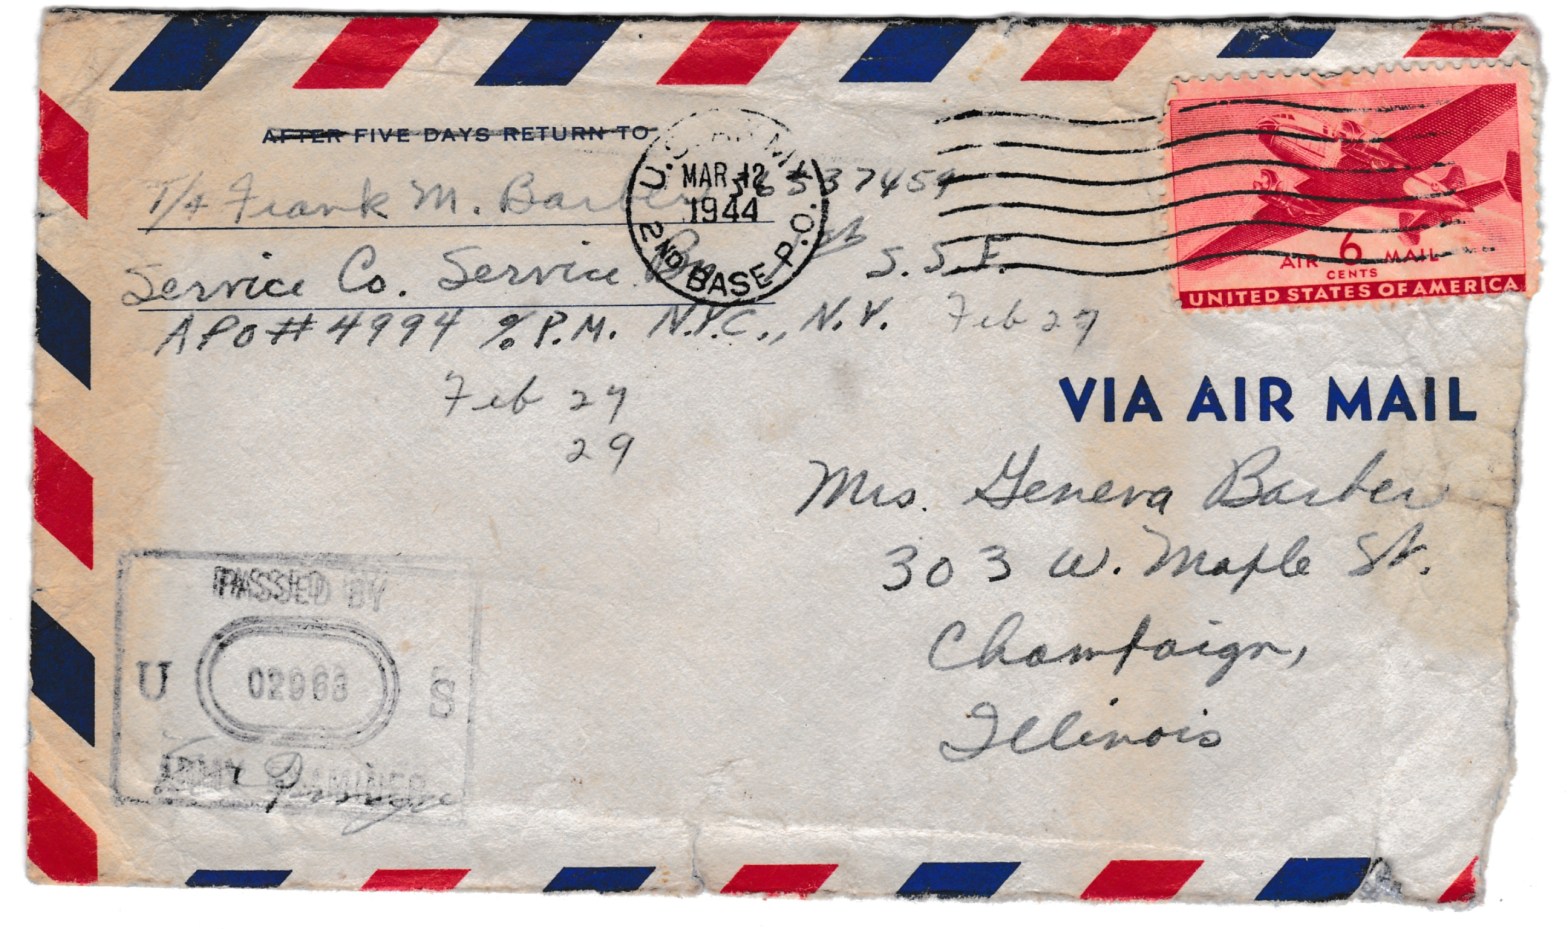 AFTER FIVE DAYS RETURN TO
T/4 Frank M. Barber 36537454
Service Co. Service S.S.F.
APO # 4994 % P.M. N.Y.C., N.Y. Feb 27
Feb 27
29
U.S. ARMY
MAR 12
1944
2ND BASE P.O.
AIR 6 MAIL
CENTS
UNITED STATES OF AMERICA
VIA AIR MAIL
Mrs. Geneva Barber
303 W. Maple St.
Champaign,
Illinois
PASSED BY
U 02963 S
ARMY EXAMINER